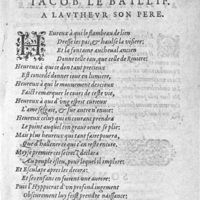 IACOB LE BAILLIF,
A LAVTHEVR SON PERE.
HEureux à qui le flambeau de lieu
Dresse les pas, & haulse la visiere:
Et la fontaine au cheual ancien
Donne telle eau, que celle de
Heureux à qui ce don tant precieux
Est concedé danner tant en lumiere,
Heureux à qui le mouuement des cieux
Faict remarquer le cours de ceste vie,
Heureux à qui d'vng esprit curieux
L'ame se, & sur autre n'enuie:
Heureux celuy qui encourant prendre
Le point auquel ton graue vers se plie:
Mais plus heureux qui tant faire pourra,
Que d'haleiner ce que t'en restera.
Moyse premier ce secret declara
Au peuple esleu, pour lequel il implore:
Et Esculape apres les declara:
Et ses enfans en furent leur aurore,
Puis l'Hyppocrat d'vn profond iugement
Obscurement luy feist prendre naissance: